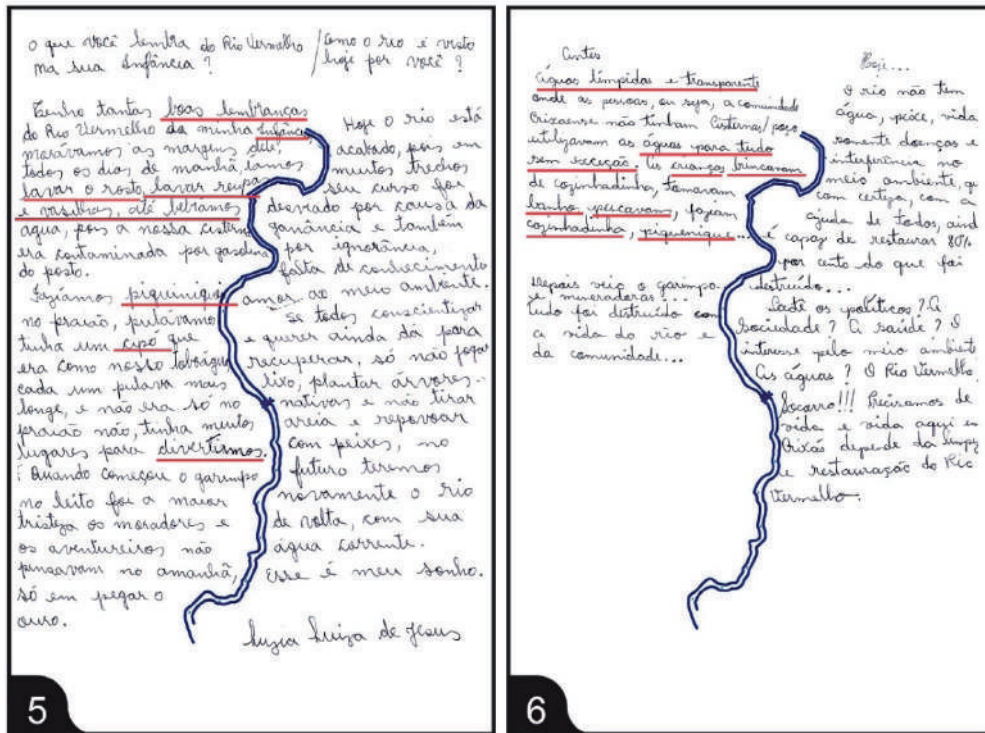 O que você lembra do Rio Vermelho
na sua Infância?
/ Como o rio é visto
hoje por você?
Tenho tantas boas lembranças
do Rio Vermelho da minha Infância,
morávamos as margens dele,
todos os dias de manhã, íamos
lavar o rosto, lavar roupas
e vasilhas, até bebíamos
água, pois a nossa cisterna
era contaminada por gasolina
do posto.
Fazíamos piquinique
no praião, pulávamos
tinha um cipó que
era como nosso
cada um pulava mais
longe, e não era só no
praião não, tinha muitos
lugares para divertirmos.
Quando começou o garimpo
no leito foi a maior
tristeza os moradores e
os aventureiros não
pensavam no amanhã,
só em pegar o
ouro.
Hoje o rio está
acabado, pois em
muitos trechos
seu curso foi
desviado por causa da
ganância e também
por ignorância,
falta de conhecimento
amor ao meio ambiente.
Se todos conscientizar
e querer ainda dá para
recuperar, só não jogar
lixo, plantar árvores
nativas e não tirar
areia e repovoar
com peixes, no
futuro teremos
novamente o rio
de volta, com sua
água corrente.
Esse é meu sonho.
Luzia Luiza de Jesus
5
Antes
Águas límpidas e transparente
onde as pessoas, ou seja, a comunidade
Crixaense não tinham Cisternas/poço
utilizavam as águas para tudo
sem exceção. As crianças brincavam
de cozinhadinha, tomavam
banho, pescavam, faziam
cozinhadinha, piquenique...
Depois veio o garimpo
e mineradoras...
Tudo foi destruído com
a vida do rio e
da comunidade...
Hoje...
O rio não tem
água, peixe, vida
somente doenças e
interferência no
meio ambiente, qu
com certeza, com a
ajuda de todos, aind
é capaz de restaurar 80%
por cento do que foi
destruído...
Cadê os políticos? A
Sociedade? A saúde? O
interesse pelo meio ambient
As águas? O Rio Vermelho
Socorro!!! Precisamos de
vida e vida aqui em
Crixás depende da limpez
e restauração do Rio
Vermelho.
6